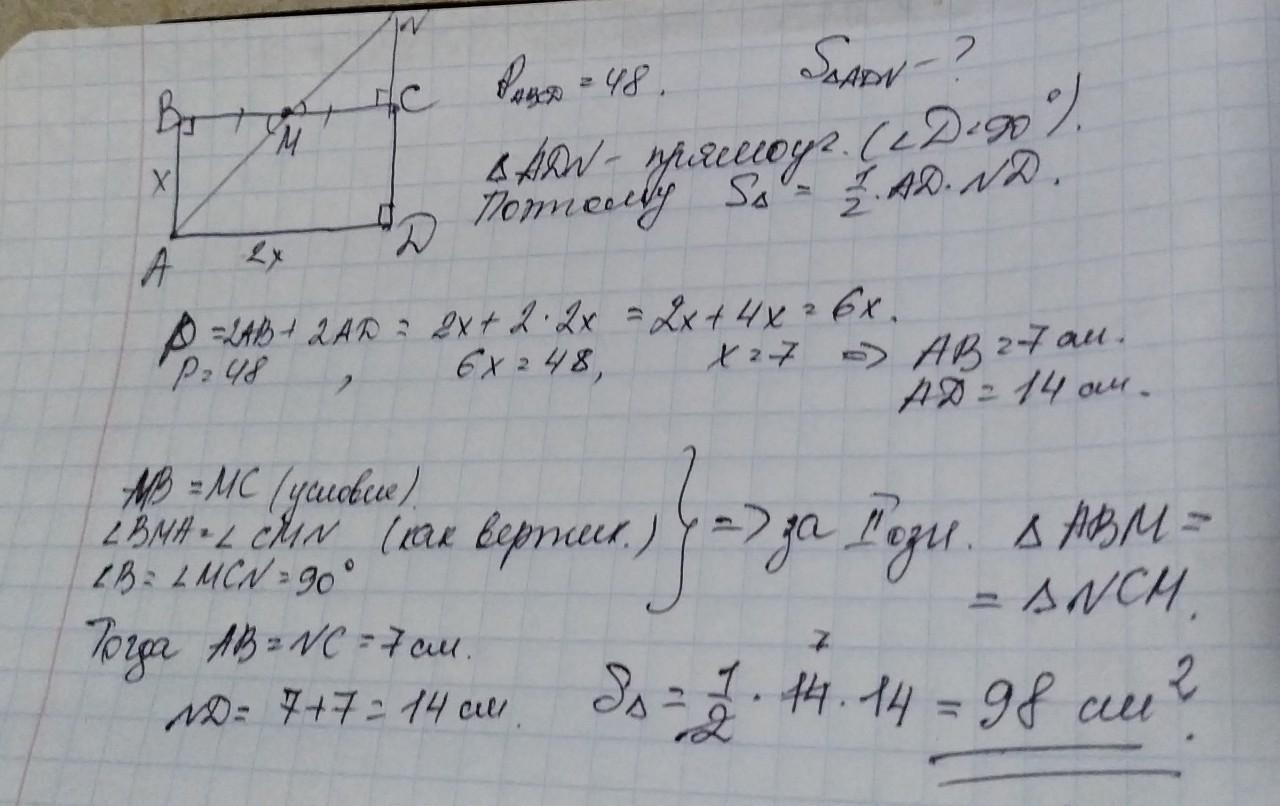 N
B
C
M
x
A
2x
D
P_ABCD = 48.
S_ΔADN - ?
ΔADN - прямоуг. (∠D=90°).
Поэтому S_Δ = 1/2 · AD · ND.
P = 2AB + 2AD = 2x + 2·2x = 2x + 4x = 6x.
P = 48, 6x = 48, x = 7 => AB = 7 см.
AD = 14 см.
MB = MC (условие)
∠BMA = ∠CMN (как вертик.)
∠B = ∠MCN = 90°
} => за II озн. ΔABM =
= ΔNCM.
Тогда AB = NC = 7 см.
ND = 7+7 = 14 см.
7
S_Δ = 1/2 · 14 · 14 = 98 см².